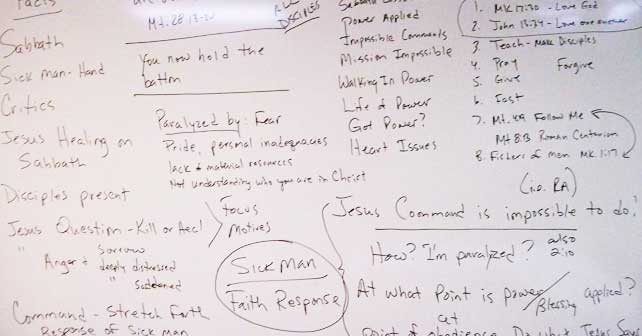 Facts
Sabbath
Sick man - Hand
Critics
Jesus Healing on
Sabbath
Disciples present
Jesus Question - Kill or
" Anger + Sorrow
deeply distressed
" Saddened
Command - Stretch Forth
Response of Sick man
Mt. 28:18-20
You now hold the
Paralyzed by: Fear
Pride, personal inadequacies
lack of material resources
Not understanding who you are in Christ
Focus
Motives
Sick Man
Faith Response
Power Applied
Impossible Commands
Mission Impossible
Walking In Power
Life of Power
Got Power?
Heart Issues
1. MK 12:30 - Love God
2. John 13:34 - Love one another
3. Teach - Make Disciples
4. Pray Forgive
5. Give
6. Fast
7. Mt. 4:19 Follow Me
Mt 8:13 Roman Centurion
8. Fishers of men MK 1:17
Jesus Command is impossible to do!
How? I'm paralyzed? also
2:10
At what Point is power/Blessing applied?
at
Point of obedience